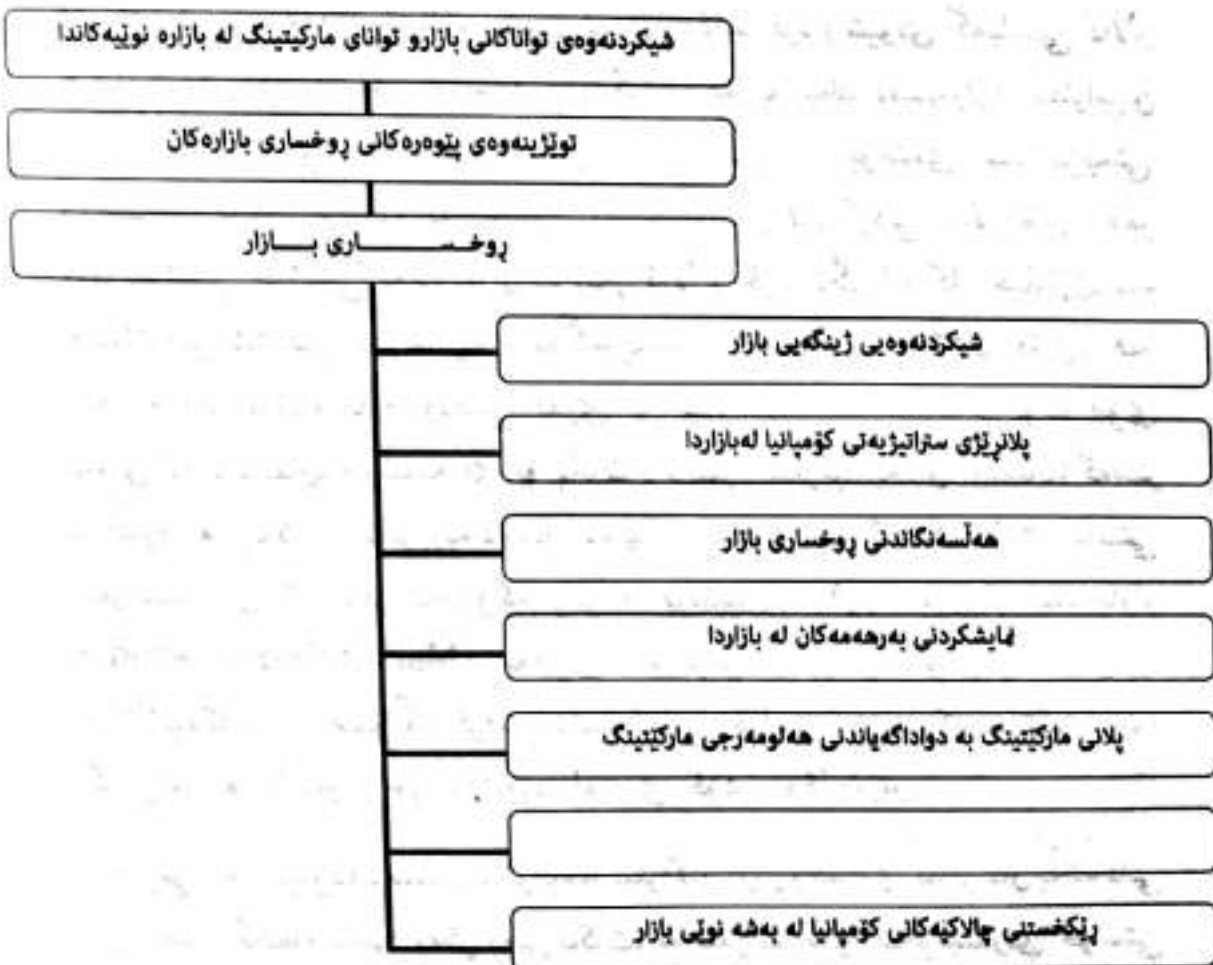 شیکردنەوەی تواناکانی بازارو توانای مارکیتینگ لە بازارە نوێیەکاندا
توێژینەوەی پێوەرەکانی ڕوخساری بازارەکان
ڕوخـــــــــساری بـــــازار
شیکردنەوەیی ژینگەیی بازار
پلانڕێژی ستراتیژیەتی کۆمپانیا لەبازاردا
هەڵسەنگاندنی ڕوخساری بازار
نمایشکردنی بەرهەمەکان لە بازاردا
پلانی مارکێتینگ بە دواداگەیاندنی هەلومەرجی مارکێتینگ
ڕێکخستنی چالاکیەکانی کۆمپانیا لە بەشە نوێی بازار